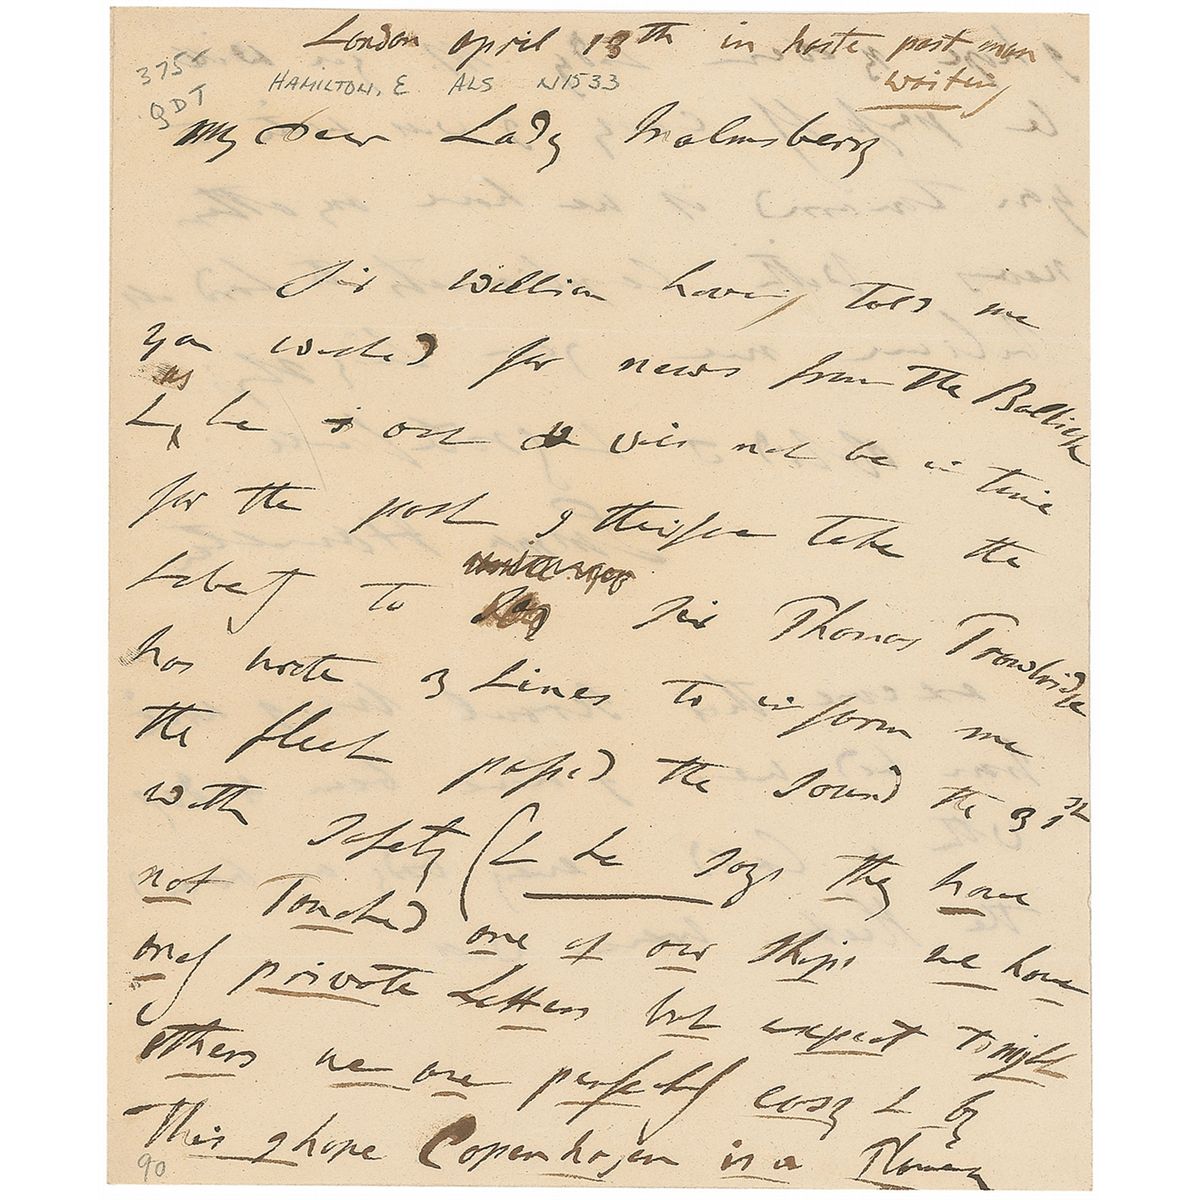 London april 13th in haste post man
waiting
375-
GDT
HAMILTON, E ALS N1533
My Dear Lady Malmsberry
Sir William having told me
you wished for news from the Baltick
as
& he is out & will not be in time
for the post I theirfore take the
Liberty to Sir Thomas Trowbridge
has wrote 3 Lines to inform me
the fleet passed the sound the 31st
with safety (& he says they have
not Touched one of our ships we have
only private Letters but expect to night
others we are perfectly easy & by
This I hope Copenhagen is a
90